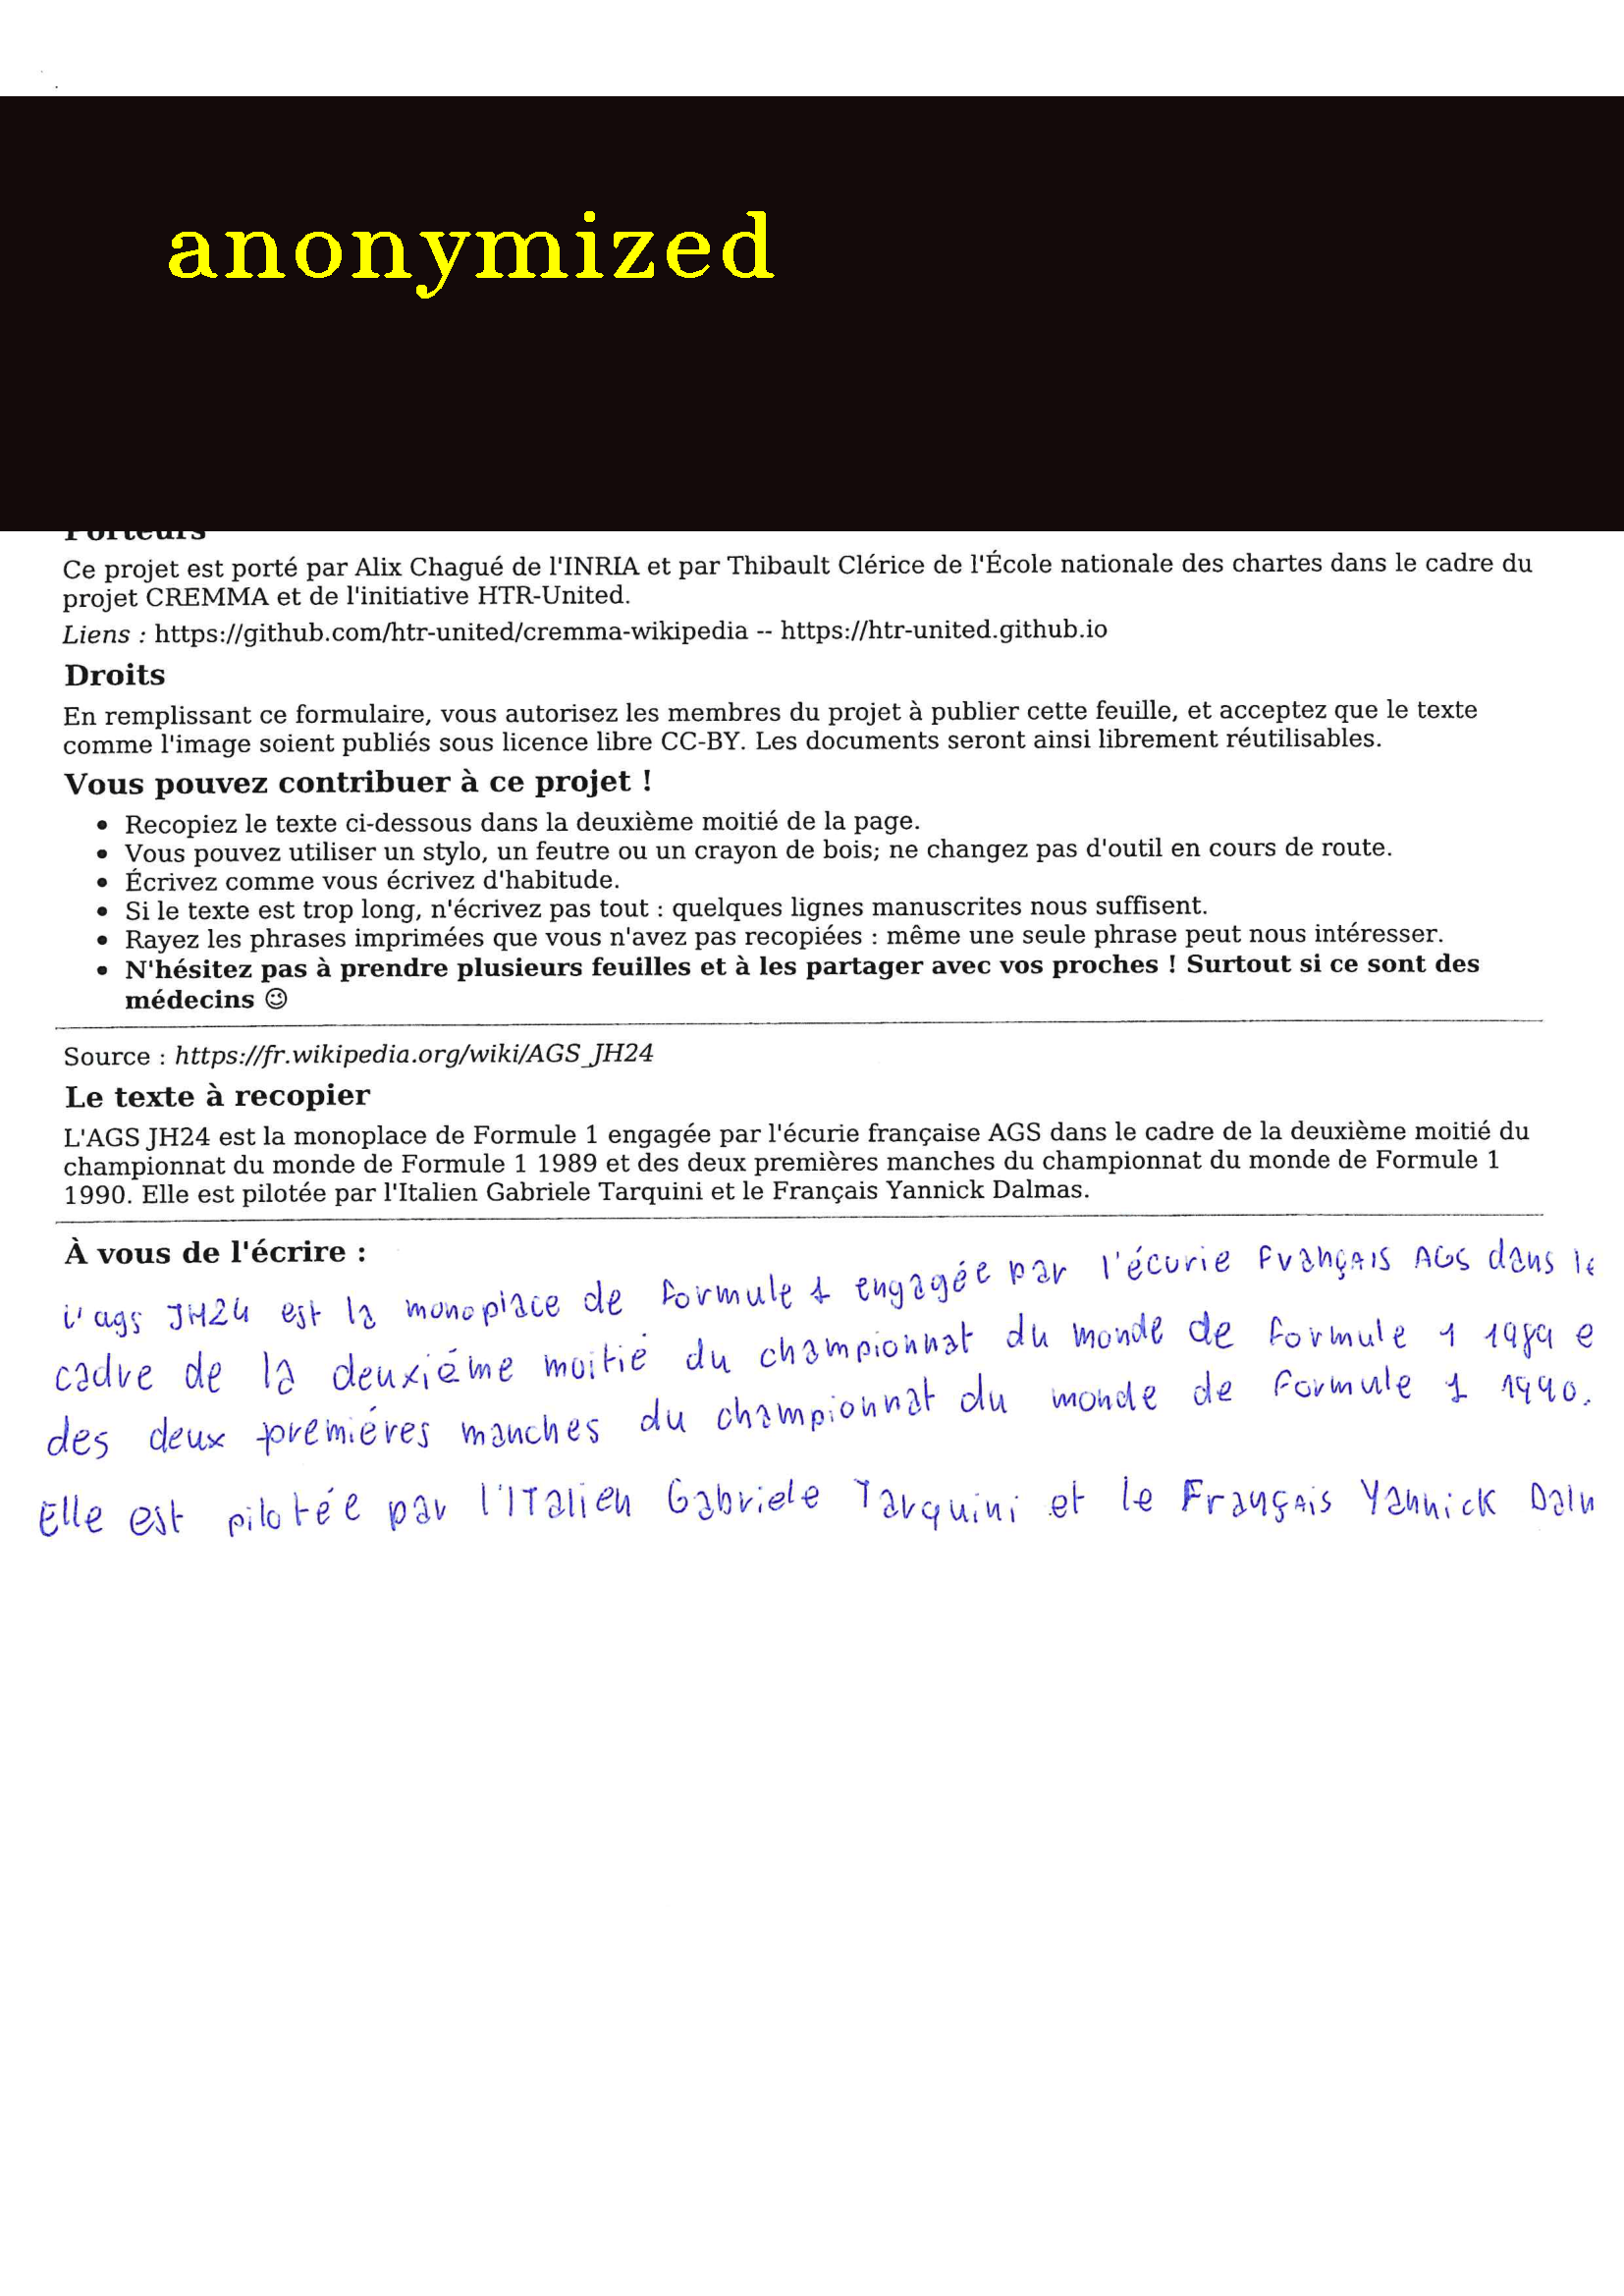 anonymized
Porteurs
Ce projet est porté par Alix Chagué de l'INRIA et par Thibault Clérice de l'École nationale des chartes dans le cadre du
projet CREMMA et de l'initiative HTR-United.
Liens : https://github.com/htr-united/cremma-wikipedia -- https://htr-united.github.io
Droits
En remplissant ce formulaire, vous autorisez les membres du projet à publier cette feuille, et acceptez que le texte
comme l'image soient publiés sous licence libre CC-BY. Les documents seront ainsi librement réutilisables.
Vous pouvez contribuer à ce projet !
• Recopiez le texte ci-dessous dans la deuxième moitié de la page.
• Vous pouvez utiliser un stylo, un feutre ou un crayon de bois; ne changez pas d'outil en cours de route.
• Écrivez comme vous écrivez d'habitude.
• Si le texte est trop long, n'écrivez pas tout : quelques lignes manuscrites nous suffisent.
• Rayez les phrases imprimées que vous n'avez pas recopiées : même une seule phrase peut nous intéresser.
• N'hésitez pas à prendre plusieurs feuilles et à les partager avec vos proches ! Surtout si ce sont des
médecins 😉
Source : https://fr.wikipedia.org/wiki/AGS_JH24
Le texte à recopier
L'AGS JH24 est la monoplace de Formule 1 engagée par l'écurie française AGS dans le cadre de la deuxième moitié du
championnat du monde de Formule 1 1989 et des deux premières manches du championnat du monde de Formule 1
1990. Elle est pilotée par l'Italien Gabriele Tarquini et le Français Yannick Dalmas.
À vous de l'écrire :
L'ags JH24 est la monoplace de formule 1 engagée par l'écurie Français AGS dans le
cadre de la deuxiéme moitié du championnat du monde de formule 1 1989 e
des deux premiéres manches du championnat du monde de formule 1 1990.
Elle est pilotée par l'ITalien Gabriele Tarquini et le Français Yannick Daln